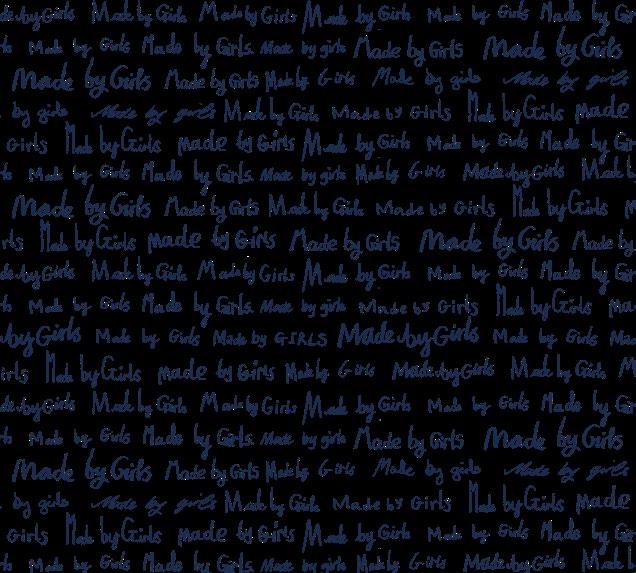 by Girls Made by Girls Made by Girls Made by Girls Made by Girls Made by
Made by Girls Made by Girls Made by girls Made by Girls Made by Girls
Made by Girls Made by Girls Made by Girls Made by girls Made by girls
by girls Made by girls Made by Girls Made by Girls Made by Girls made
Girls Made by Girls made by Girls Made by Girls Made by Girls Made by
Made by Girls Made by Girls Made by girls Made by Girls Made by Girls Made
Made by Girls Made by Girls Made by Girls Made by Girls Made by Girls
Made by Girls made by Girls Made by Girls Made by Girls Made by
by Girls Made by Girls Made by Girls Made by Girls Made by Girls Made by
Made by Girls Made by Girls Made by girls Made by Girls Made by Girls
by Girls Made by Girls Made by GIRLS Made by Girls Made by Girls Made
Made by Girls made by Girls Made by Girls Made by Girls Made by Girls
by Girls Made by Girls Made by Girls Made by Girls Made by Girls Made by
Made by Girls Made by Girls Made by girls Made by Girls Made by Girls
Made by Girls Made by Girls Made by Girls Made by girls Made by girls
by girls Made by girls Made by Girls Made by Girls Made by Girls made
Girls Made by Girls made by Girls Made by Girls Made by Girls Made by
Made by Girls Made by Girls Made by girls Made by Girls Made by Girls Made